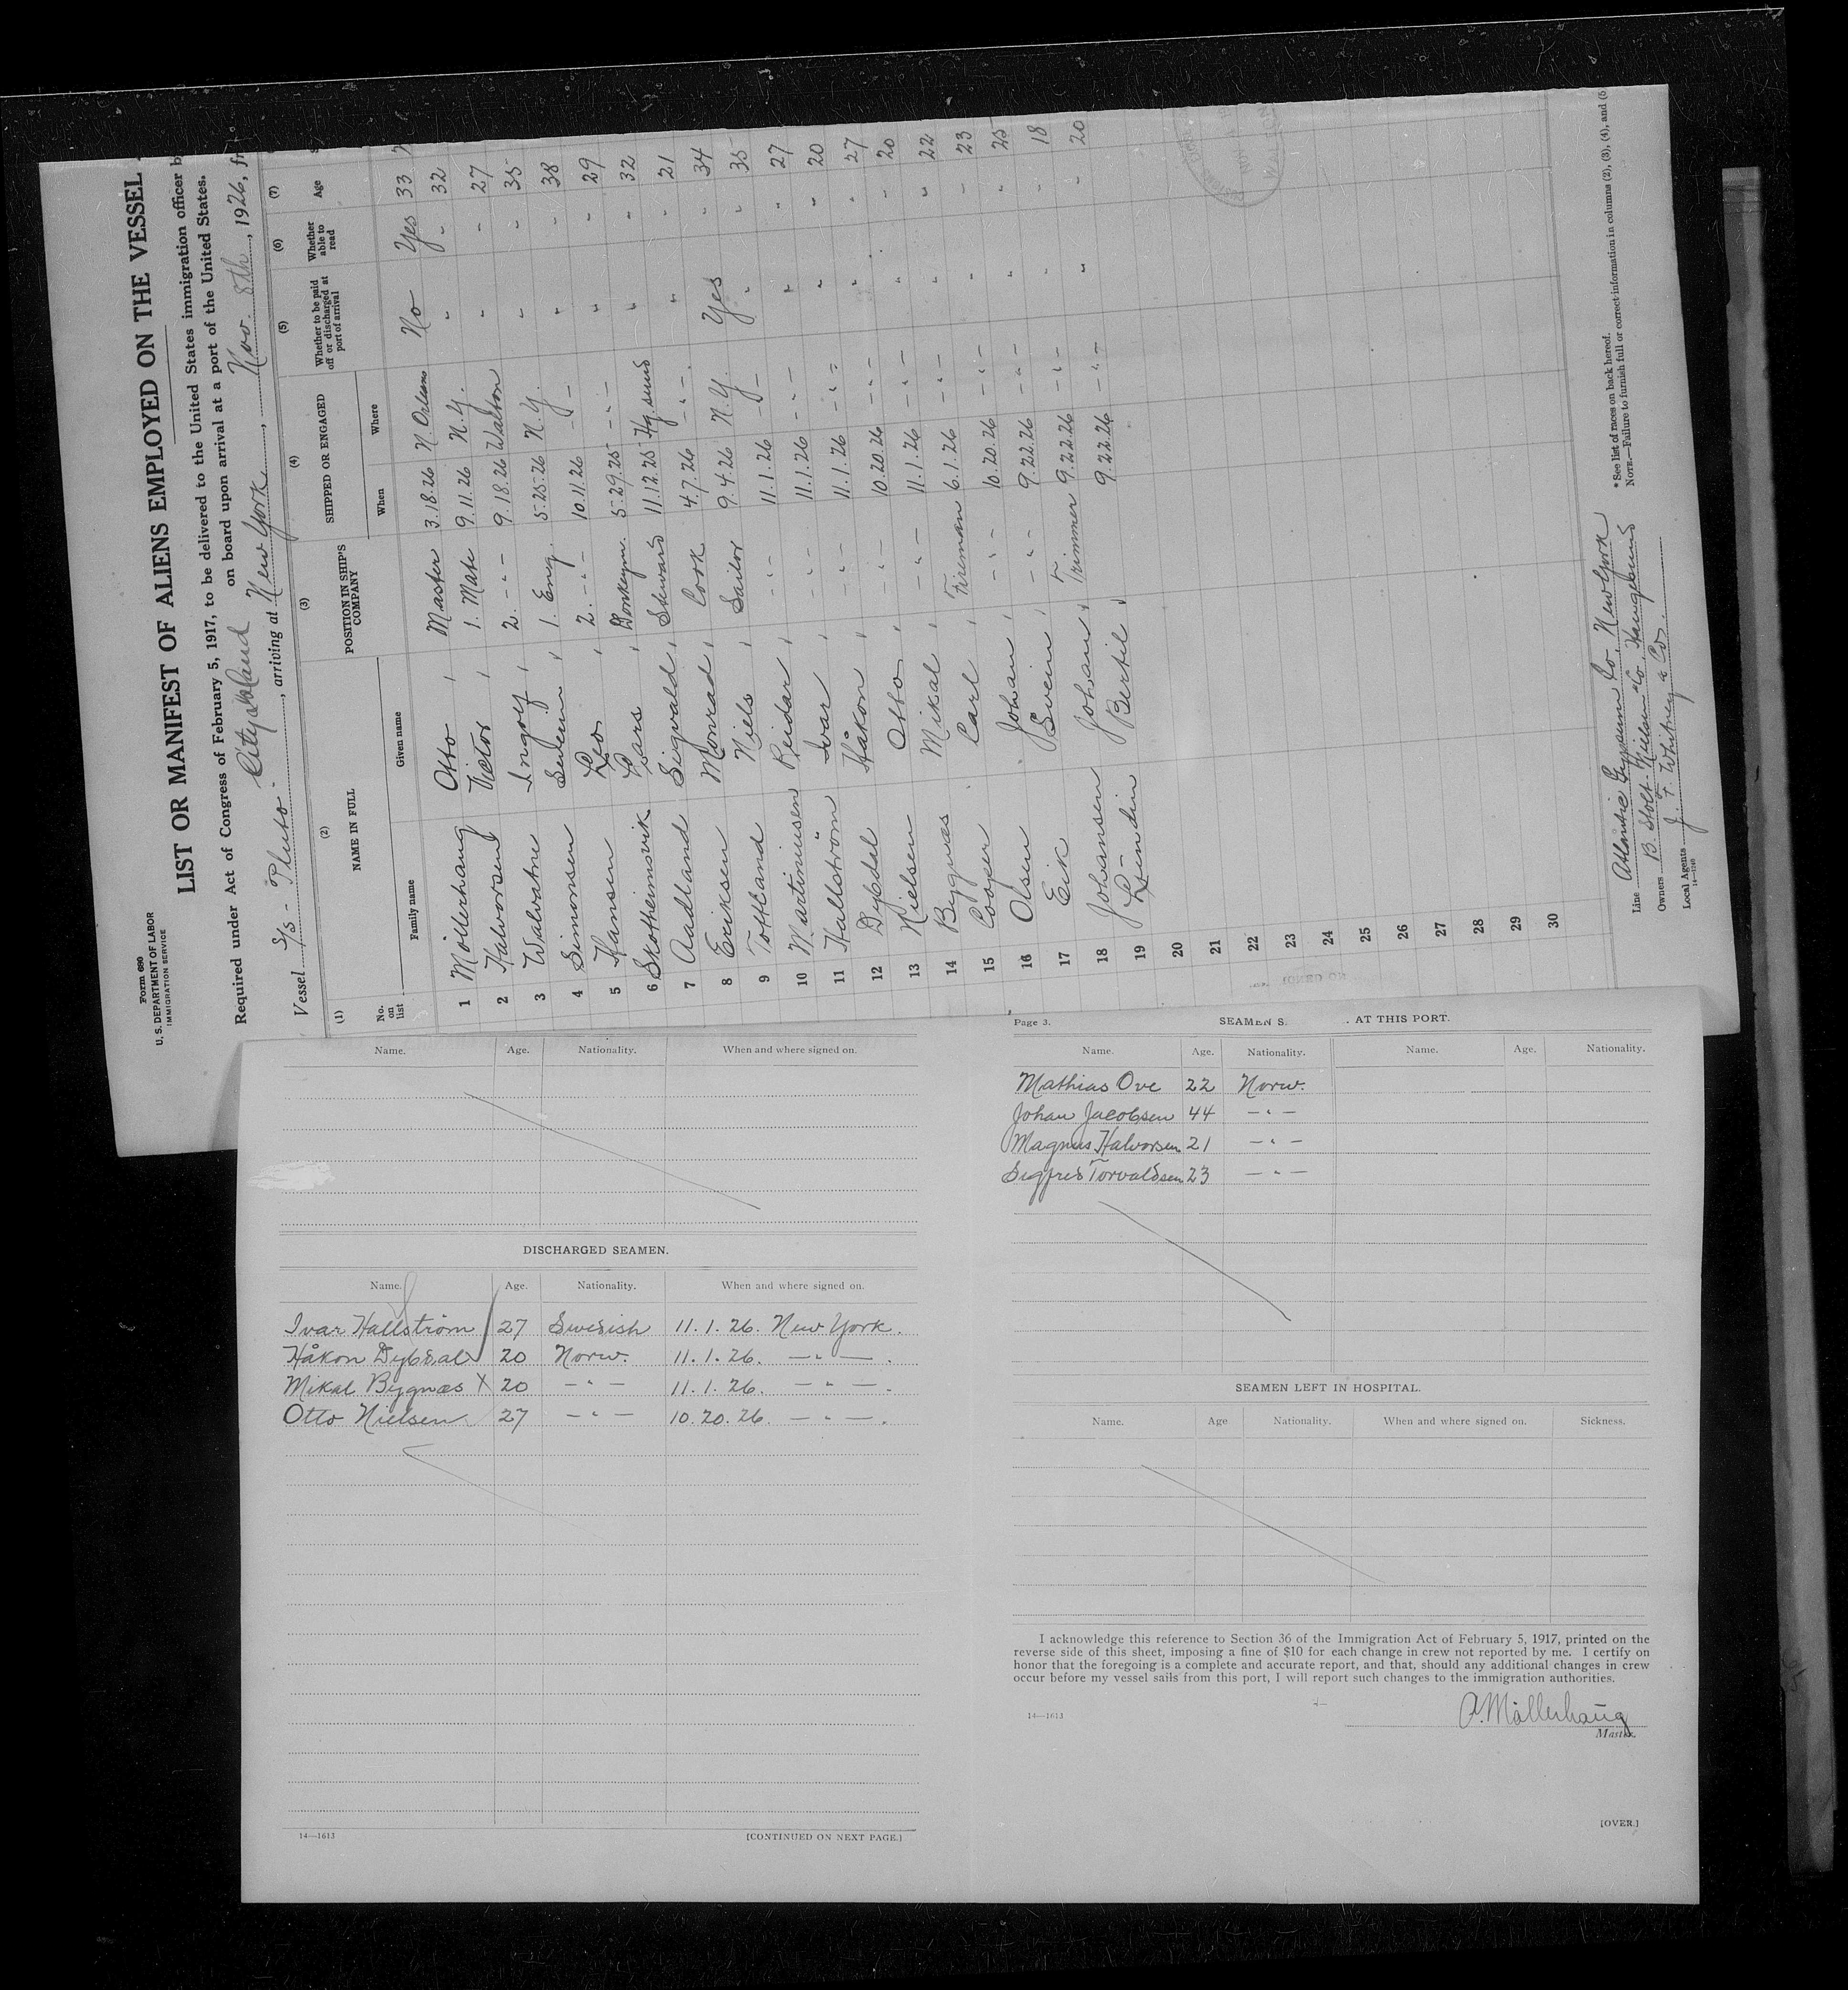 Form 680
U. S. DEPARTMENT OF LABOR
IMMIGRATION SERVICE
LIST OR MANIFEST OF ALIENS EMPLOYED ON THE VESSEL
Required under Act of Congress of February 5, 1917, to be delivered to the United States immigration officer b
on board upon arrival at a port of the United States.
Vessel S/S - Pluto - City Island, arriving at New York, Nov. 8th, 1926, fr
(1) (2) (3) (4) (5) (6) (7)
No. on list NAME IN FULL POSITION IN SHIP'S COMPANY SHIPPED OR ENGAGED Whether to be paid off or discharged at port of arrival Whether able to read Age
Family name Given name When Where
1 Möllerhaug Otto Master 3.18.26 N. Orleans No Yes 33
2 Halvorsen Victor 1. Mate 9.11.26 N.Y. " " 32
3 Walvatne Ingolf 2. - " - 9.18.26 Walton " " 27
4 Simonsen Severin 1. Eng. 5.25.26 N.Y. " " 35
5 Hansen Leo 2. - " - 10.11.26 - " - " " 38
6 Skotheimsvik Lars Donkeym. 5.29.25 - " - " " 29
7 Aadland Sigvald Steward 11.12.25 Hg.sund " " 32
8 Eriksen Monrad Cook 4.7.26 - " - " " 21
9 Tottland Niels Sailor 9.4.26 N.Y. Yes " 34
10 Martiniusen Reidar - " - 11.1.26 - " - " " 35
11 Hallström Ivar - " - 11.1.26 - " - " " 27
12 Dybdal Håkon - " - 11.1.26 - " - " " 20
13 Nielsen Otto - " - 10.20.26 - " - " " 27
14 Bygnæs Mikal - " - 11.1.26 - " - " " 20
15 Cooper Carl Fireman 6.1.26 - " - " " 22
16 Olsen Johan - " - 10.20.26 - " - " " 23
17 Eik Svein - " - 9.22.26 - " - " " 25
18 Johansen Johan Trimmer 9.22.26 - " - " " 18
19 Lindin Bertil 9.22.26 - " - " " 20
20
21
22
23
24
25
26
27
28
29
30
Line Atlantic Gypsum Co, New York
Owners B. Stolt-Nielsen & Co, Haugesund
Local Agents J. F. Whitney & Co.
14—1240
* See list of races on back hereof.
NOTE.—Failure to furnish full or correct information in columns (2), (3), (4), and (5
Name. Age. Nationality. When and where signed on.
DISCHARGED SEAMEN.
Name. Age. Nationality. When and where signed on.
Ivar Hallström 27 Swedish 11.1.26. New York.
Håkon Dybdal 20 Norw. 11.1.26. - " - .
Mikal Bygnæs X 20 - " - 11.1.26. - " - .
Otto Nielsen 27 - " - 10.20.26. - " - .
14—1613 [CONTINUED ON NEXT PAGE.]
Page 3. SEAMEN S. . AT THIS PORT.
Name. Age. Nationality. Name. Age. Nationality.
Mathias Ove 22 Norw.
Johan Jacobsen 44 - " -
Magnus Halvorsen 21 - " -
Sigfred Torvaldsen 23 - " -
SEAMEN LEFT IN HOSPITAL.
Name. Age Nationality. When and where signed on. Sickness.
I acknowledge this reference to Section 36 of the Immigration Act of February 5, 1917, printed on the
reverse side of this sheet, imposing a fine of $10 for each change in crew not reported by me. I certify on
honor that the foregoing is a complete and accurate report, and that, should any additional changes in crew
occur before my vessel sails from this port, I will report such changes to the immigration authorities.
14—1613
O. Möllerhaug
Master.
[OVER.]